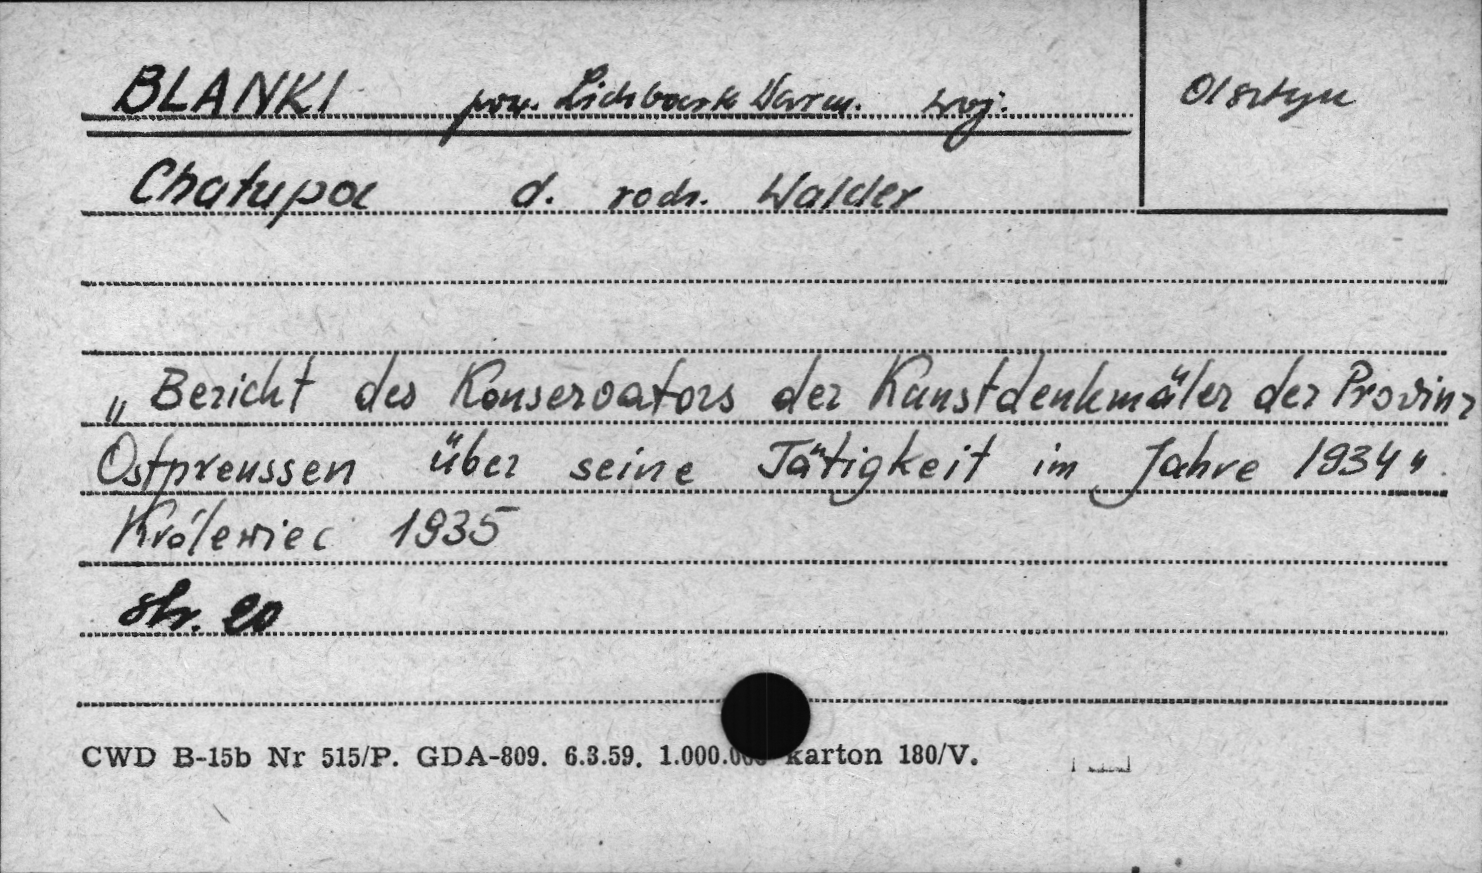 BLANKI pow. Lidzbark Warm. woj. Olsztyn
Chałupa d. rodz. Walder
„Bericht des Konservators der Kunstdenkmäler der Provinz
Ostpreussen über seine Tätigkeit im Jahre 1934".
Królewiec 1935
str. 20
CWD B-15b Nr 515/P. GDA-809. 6.3.59. karton 180/V.